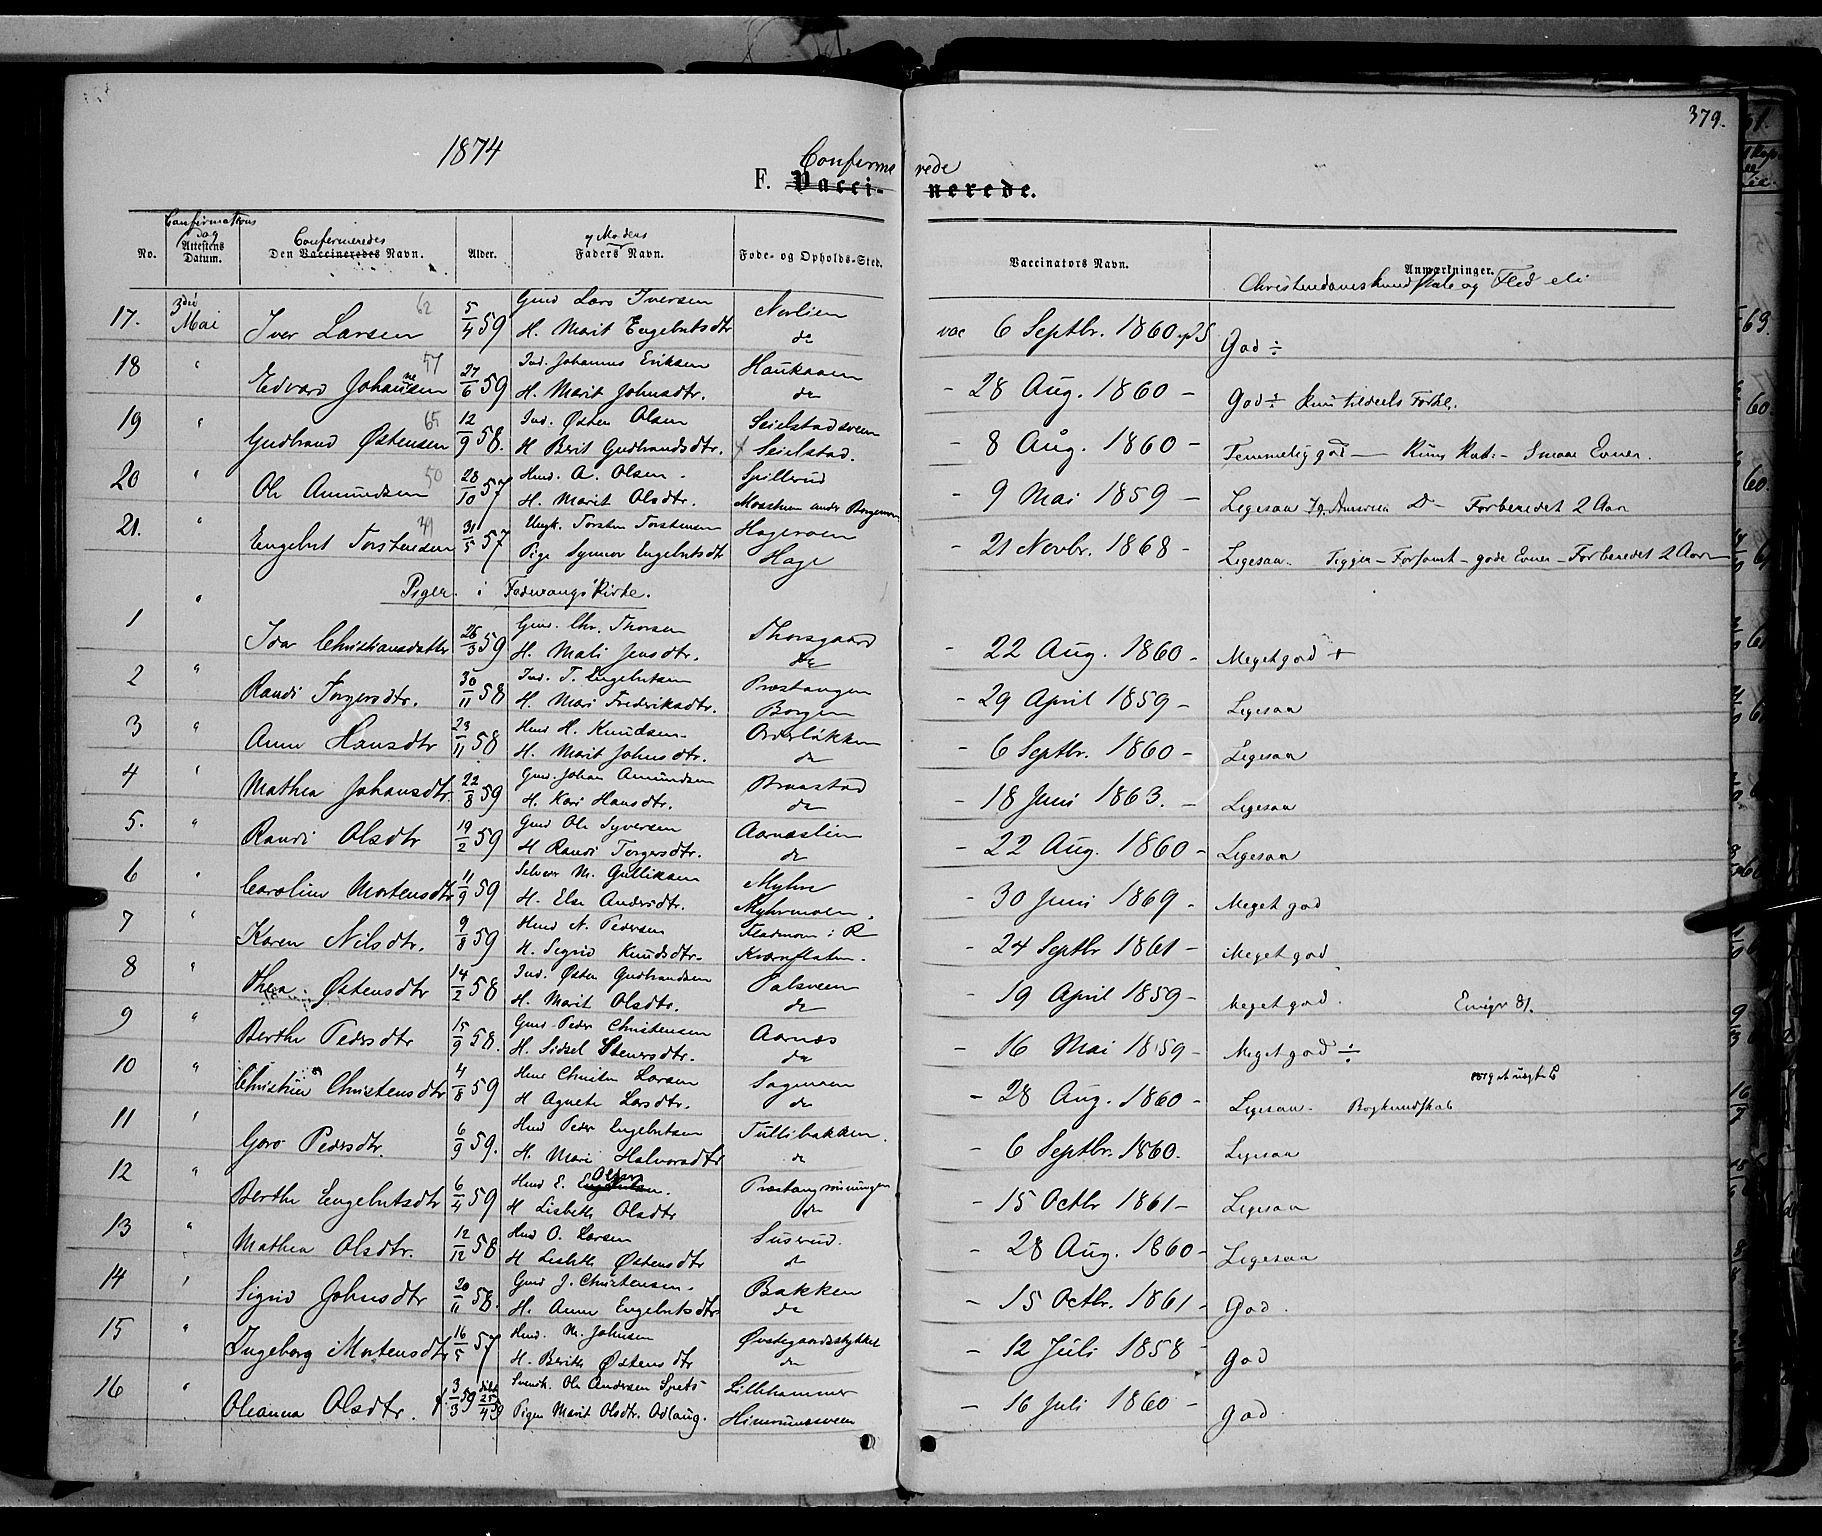 379.
1874
Conferme rede
F. Vacci- nerede.
Confirmations Dag
No. Attestens Datum. Den Vaccineredes Navn. Confirmeredes Alder. Faders Navn. og Moders Føde- og Opholds-Sted. Vaccinators Navn. Anmærkninger. Christendomskundskab og Flid
17. 3die Mai Iver Larsen 62 5/4 59 Gmd Lars Iversen Nerlien vac 6 Septbr. 1860 God ÷
H. Marit Engebretsdtr do
18 " Edvard Johannesen 57 27/6 59 Ind. Johannes Eriksen Haukaaen - 28 Aug. 1860 - God ÷
H. Marit Johnsdtr. do
19 " Gudbrand Østensen 65 12/9 58. Ind. Østen Olsen Seielstadsveen - 8 Aug. 1860 - Temmelig god - Smaa Evner.
H Berit Gudbrandsdtr. Seielstad.
20 " Ole Amundsen 50 28/10 57 Hmd. A. Olsen. Spillerud - 9 Mai 1859 - Ligesaa Forberedet 2 Aar
H. Marit Olsdtr. Moastuen under Borgen
21. " Engebret Torstensen 31/5 57 Ungk. Torsten Torstensen Hageroen - 21 Novbr. 1868 - Ligesaa. Tigger - Forsømt - gode Evner - Forberedet 2 Aar
Pige Synnør Engebretsdtr Hage
" Piger i Faaberg Kirke.
1 Ida Christiansdatter 26/3 59 Gmd. Chr. Thorsen Thorsgaard - 22 Aug. 1860 - Meget god +
H. Mali Jensdtr. do
2 " Randi Torgersdtr. 30/11 58 Ind. T. Engebretsen Præstangen - 29 April 1859 - Ligesaa
H. Mari Frederiksdtr. Borgen
3 " Anne Hansdtr 23/11 58 Hmd H. Knudsen Overløkken - 6 Septbr. 1860 - Ligesaa
H. Marit Johnsdtr. do
4 " Mathea Johansdtr. 22/8 59 Gmd. Johan Amundsen Braastad - 18 Juni 1863. - Ligesaa
H. Kari Hansdtr. do
5. " Randi Olsdtr 19/2 59 Gmd Ole Syversen Aarnæslien - 22 Aug. 1860 - Ligesaa
H Randi Torgersdtr. do
6 " Caroline Mortensdtr 11/9 59 Selveier M. Gulliksen Myhre - 30 Juni 1869 - Meget god
H. Else Andersdtr. Myhrmoen.
7 " Karen Nilsdtr. 9/8 59 Hmd N. Pedersen Fladmoen i R - 24 Septbr 1861 - Meget god
H. Sigrid Knudsdtr. Kværnflaten.
8 " Thea Østensdtr 14/2 58 Ind. Østen Gudbrandsen Palsveen - 19 April 1859 - Meget god. Emigr 81.
H. Marit Olsdtr. do
9 " Berthe Pedersdtr 15/9 58. Gmd Peder Christensen Aarnæs - 16 Mai 1859 - Meget god ÷
H. Sidsel Stenersdtr. do
10 " Christine Christensdtr 4/8 59 Hmd Christen Larsen Sagmoen - 28 Aug. 1860 - Ligesaa. Bogkundskab
H Agnete Larsdtr. do
11 " Goro Pedersdtr. 6/9 59. Hmd Peder Engebretsen Tullibakken. - 6 Septbr. 1860. Ligesaa
H. Mari Halvorsdtr do
12 " Berthe Engebretsdtr 6/4 59 Hmd E. Olsen Præstangsviningen - 15 Octbr 1861 - Ligesaa
H Lisbeth Olsdtr do
13 " Mathea Olsdtr. 12/12 58 Hmd O. Larsen Suserud. - 28 Aug. 1860 - Ligesaa
H Lisbeth Østensdtr do
14 " Sigrid Johnsdtr 20/11 58. Gmd J. Christensen. Bakken - 15 Octbr. 1861 - God.
H. Anne Engebretsdtr do
15 " Ingeborg Mortensdtr 16/5 57 Hmd. M. Johnsen Øvstegaardsstykket - 12 Juli 1858 - God
H. Berith Østensdtr do
16 " Oleanna Olsdtr. f. 3/3 59 døbt 25/4 59 Svend. Ole Andersen Lillehammer - 16 Juli 1860 - God.
Pigen Marit Olsdtr. Odlaug.